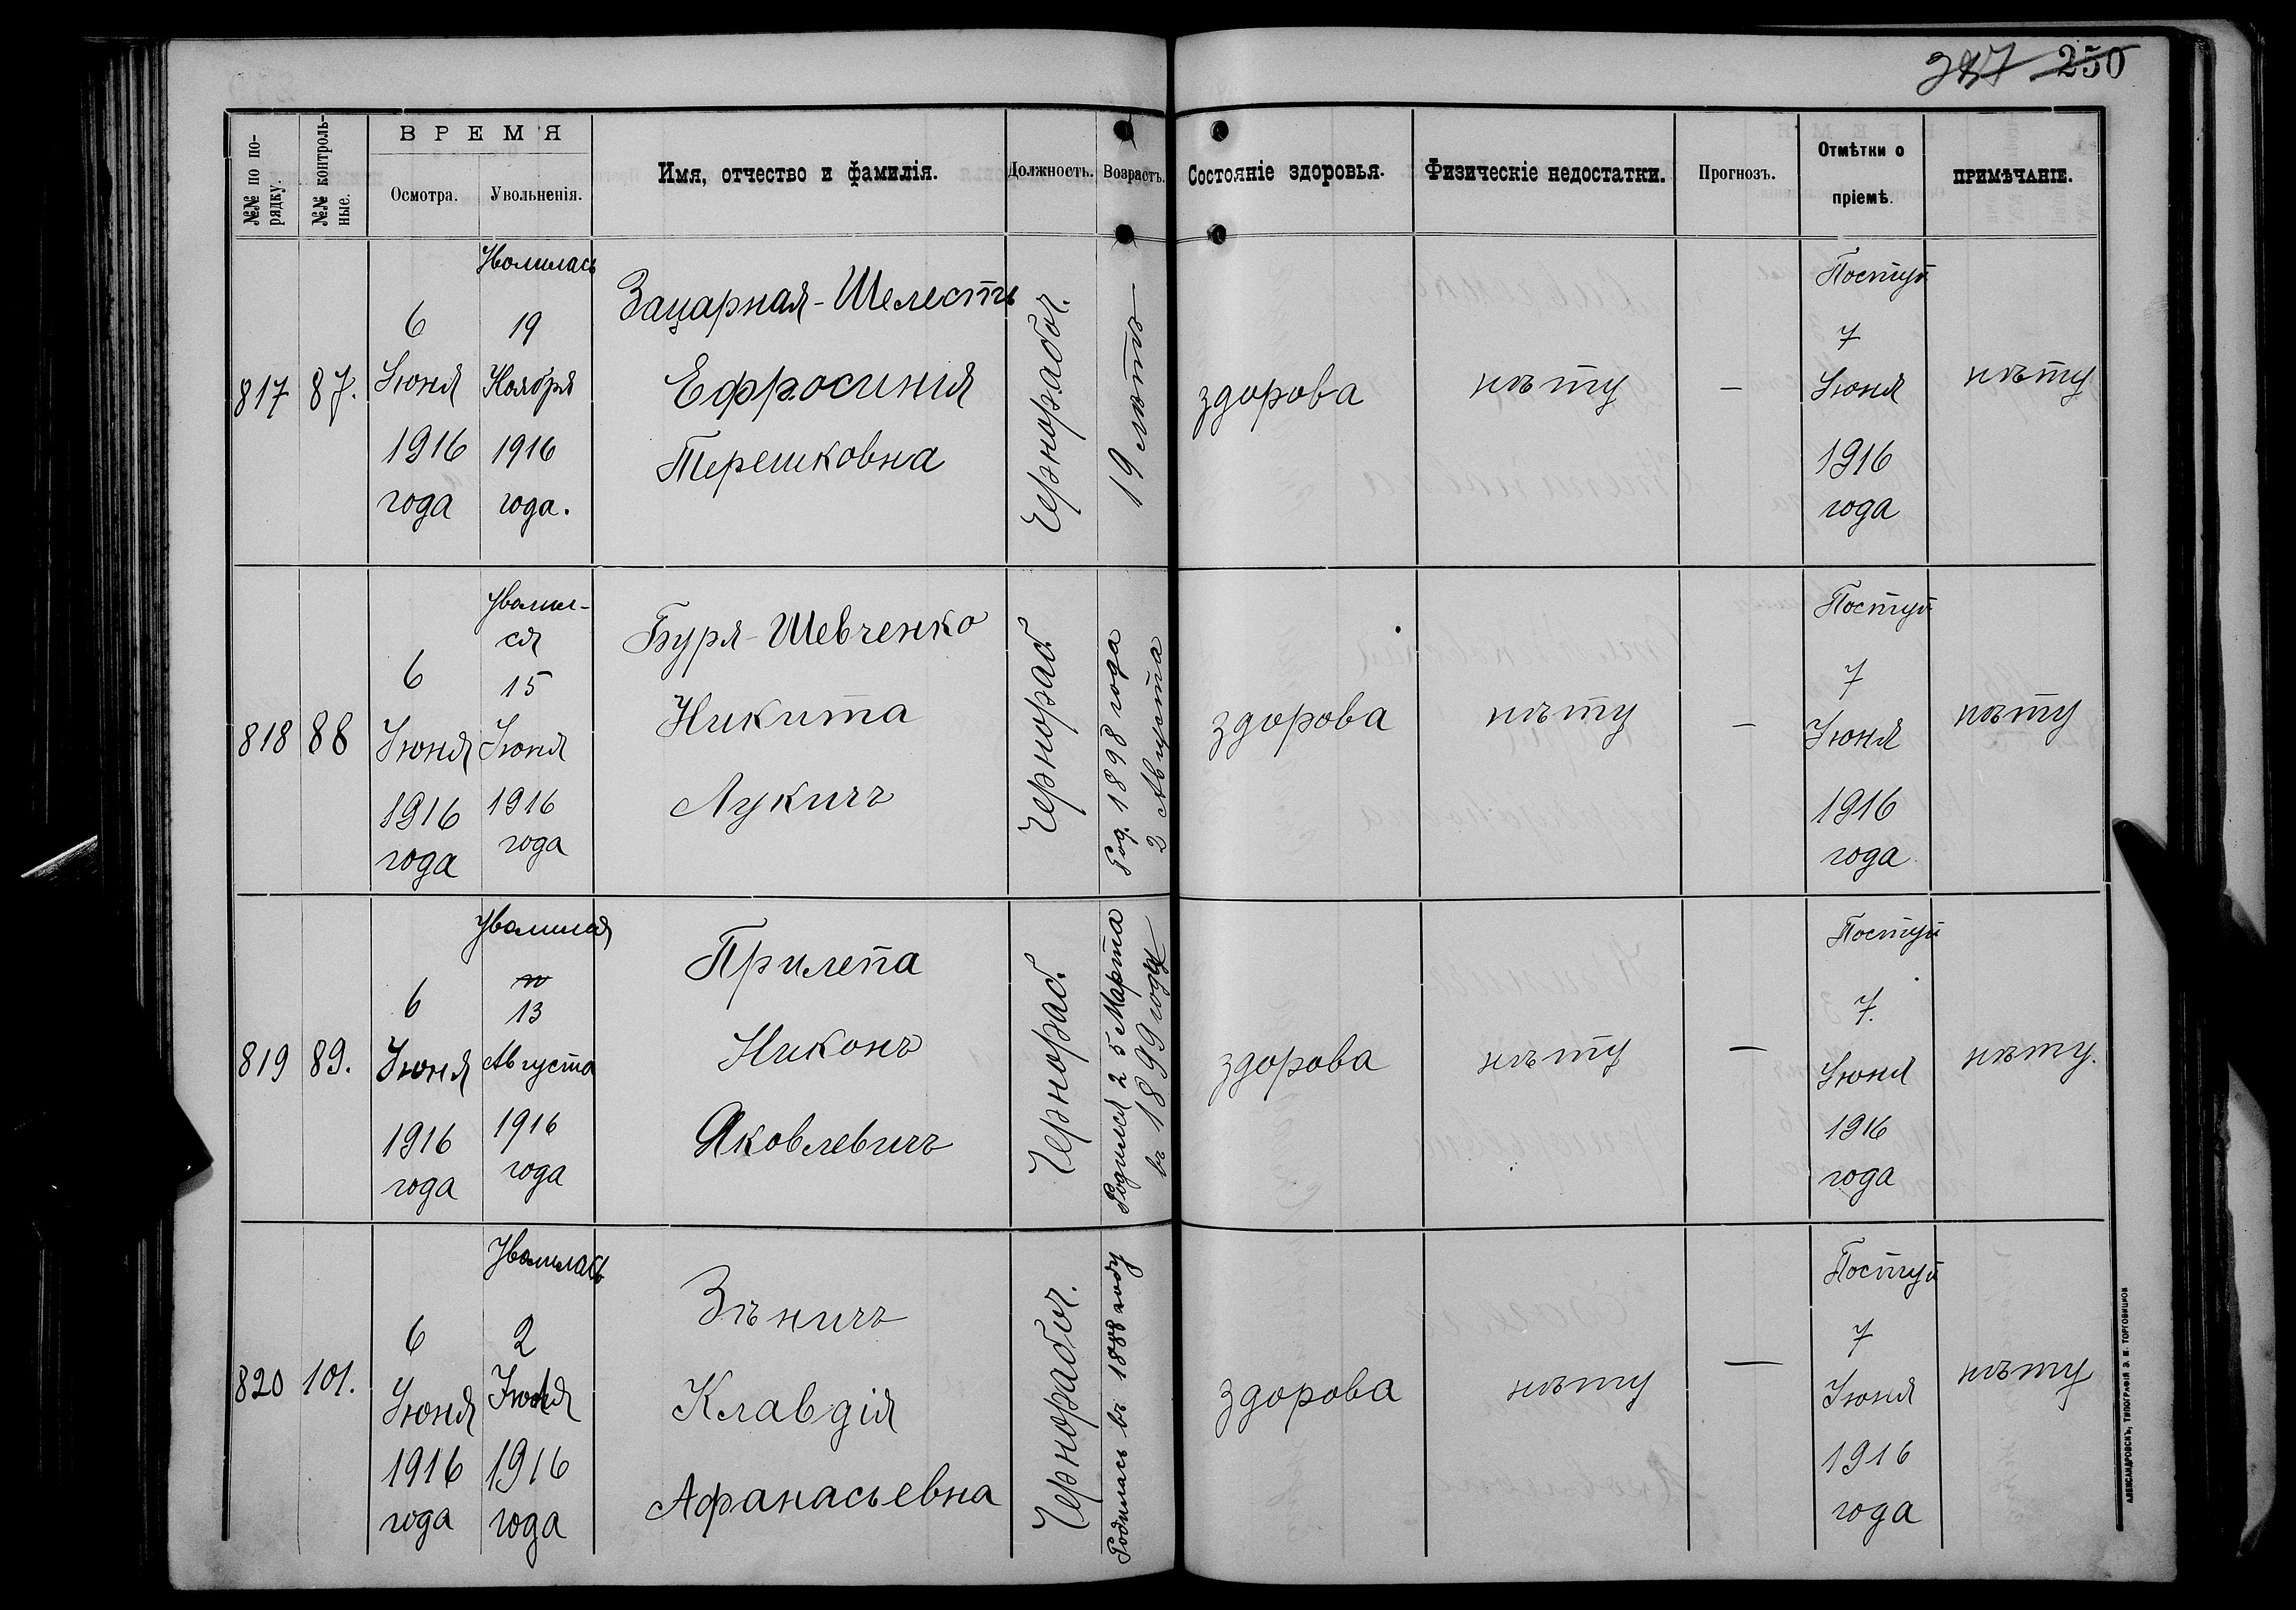 250
№№ по по-
рядку.
№№ контроль-
ные.
ВРЕМЯ
Осмотра.
Увольненія.
Имя, отчество и фамилія.
Должность.
Возрастъ.
Состояніе здоровья.
Физическіе недостатки.
Прогнозъ.
Отмѣтки о
пріемѣ.
ПРИМѢЧАНІЕ.
817
87.
6
Іюня
1916
года
19
Ноября
1916
года.
Зацарная-Шелестъ
Ефросинія
Терешковна
Чернорабоч.
19 лѣтъ
здорова
нѣту
—
Поступ
7
Іюня
1916
года
нѣту
818
88
6
Іюня
1916
года
Уволил-
ся
15
Іюня
1916
года
Буря-Шевченко
Никита
Лукичъ
Чернораб.
Род. 1898 года
2 Августа
здорова
нѣту
—
Поступ
7
Іюня
1916
года
нѣту
819
89.
6
Іюня
1916
года
13
Августа
1916
года
Прилепа
Никонъ
Яковлевичъ
Чернораб.
Родился 25 Марта
въ 1899 году
здорова
нѣту
—
Поступ
7.
Іюня
1916
года
нѣту.
820
101.
6
Іюня
1916
года
Уволилась
2
1916
года
Зѣничъ
Клавдія
Афанасьевна
Чернорабоч.
Родилась въ 1888 году
здорова
нѣту
—
Поступ
7
Іюня
1916
года
нѣту
АЛЕКСАНДРОВСКЪ, ТИПОГРАФІЯ Э. И. ТОРГОВИЦКОЙ